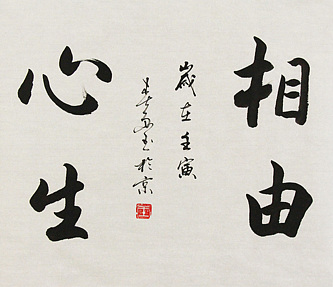 相由
心生
歲在壬寅
於京